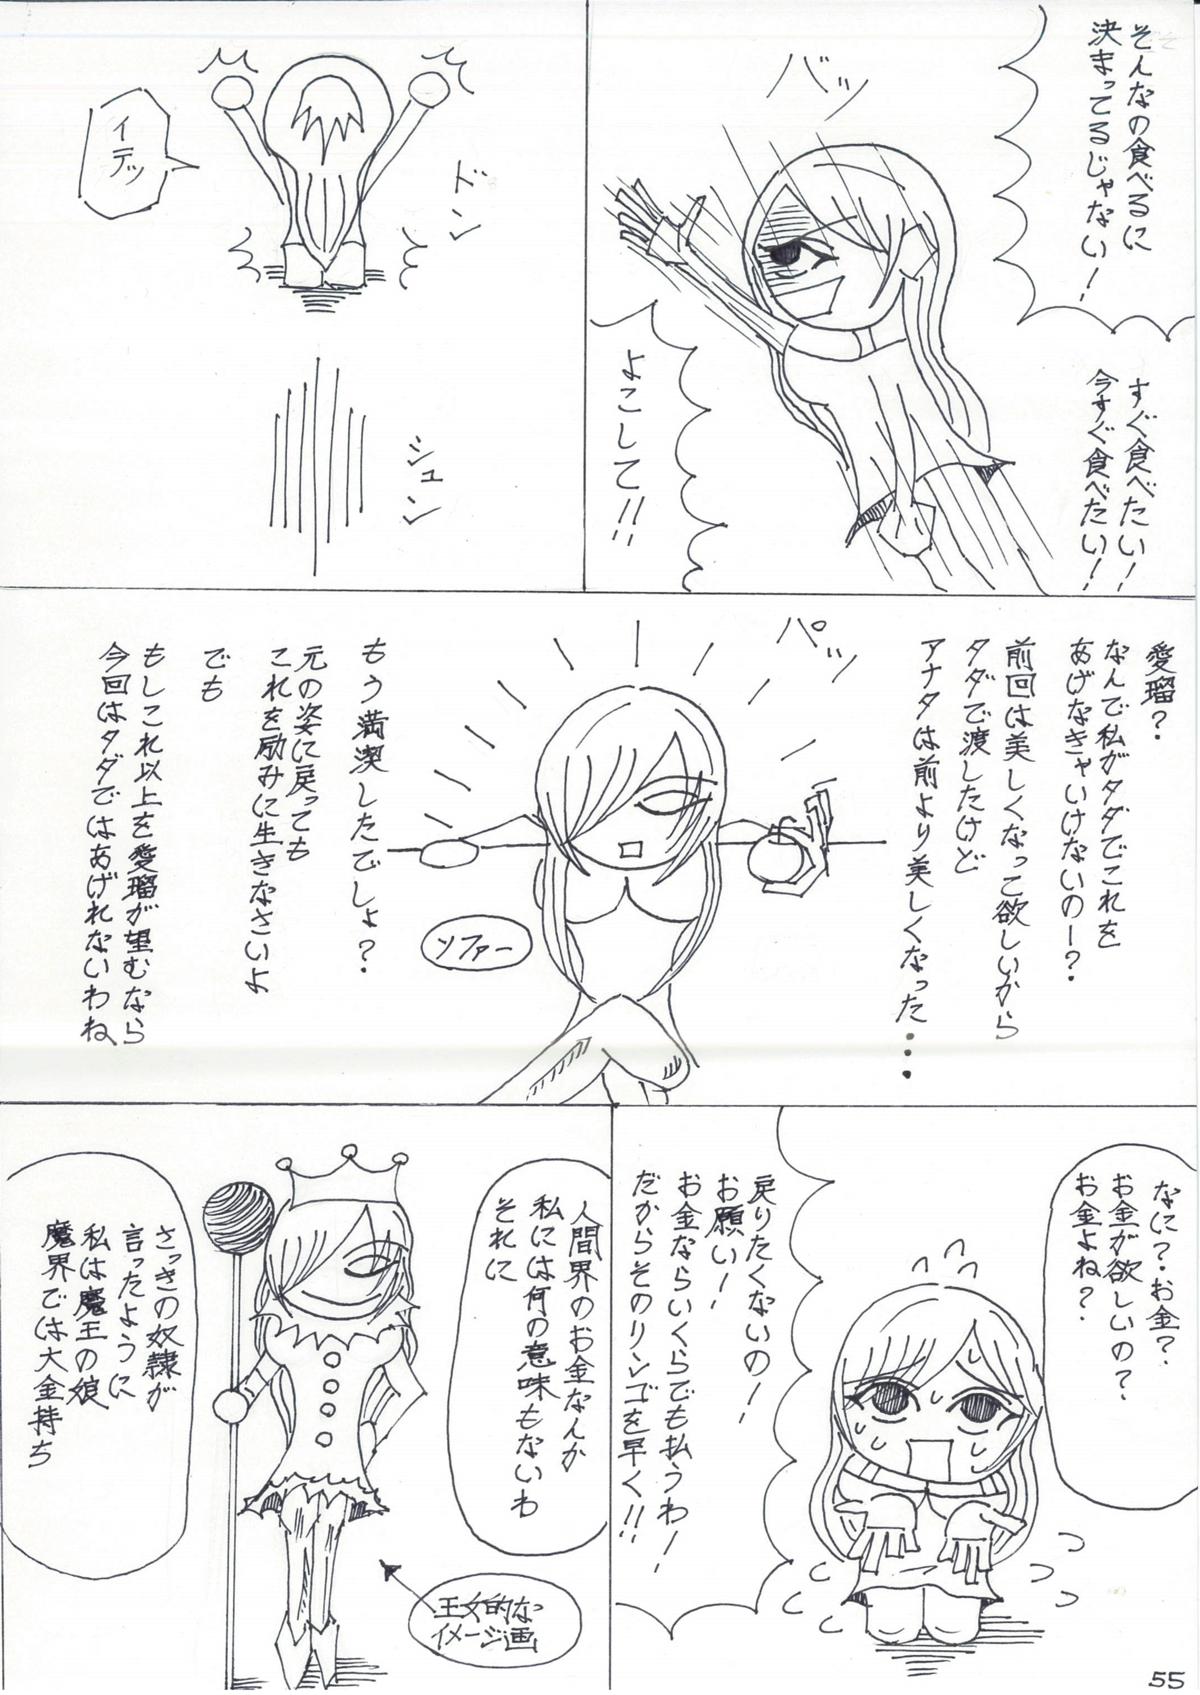 そんなの食べるに
決まってるじゃない！
すぐ食べたい！
今すぐ食べたい！
バッ
よこして！！
シュン
ドン
イテッ
愛瑠？
なんで私がタダでこれを
あげなきゃいけないのー？
前回は美しくなって欲しいから
タダで渡したけど
アナタは前より美しくなった・・・
パッ
ソファー
もう満喫したでしょ？
元の姿に戻っても
これを励みに生きなさいよ
でも
もしこれ以上を愛瑠が望むなら
今回はタダではあげれないわね
なに？お金？
お金が欲しいの？
お金よね？
戻りたくないの！
お願い！
お金ならいくらでも払うわ！
だからそのリンゴを早く！！
人間界のお金なんか
私には何の意味もないわ
それに
さっきの奴隷が
言ったように
私は魔王の娘
魔界では大金持ち
王女的な
イメージ画
55